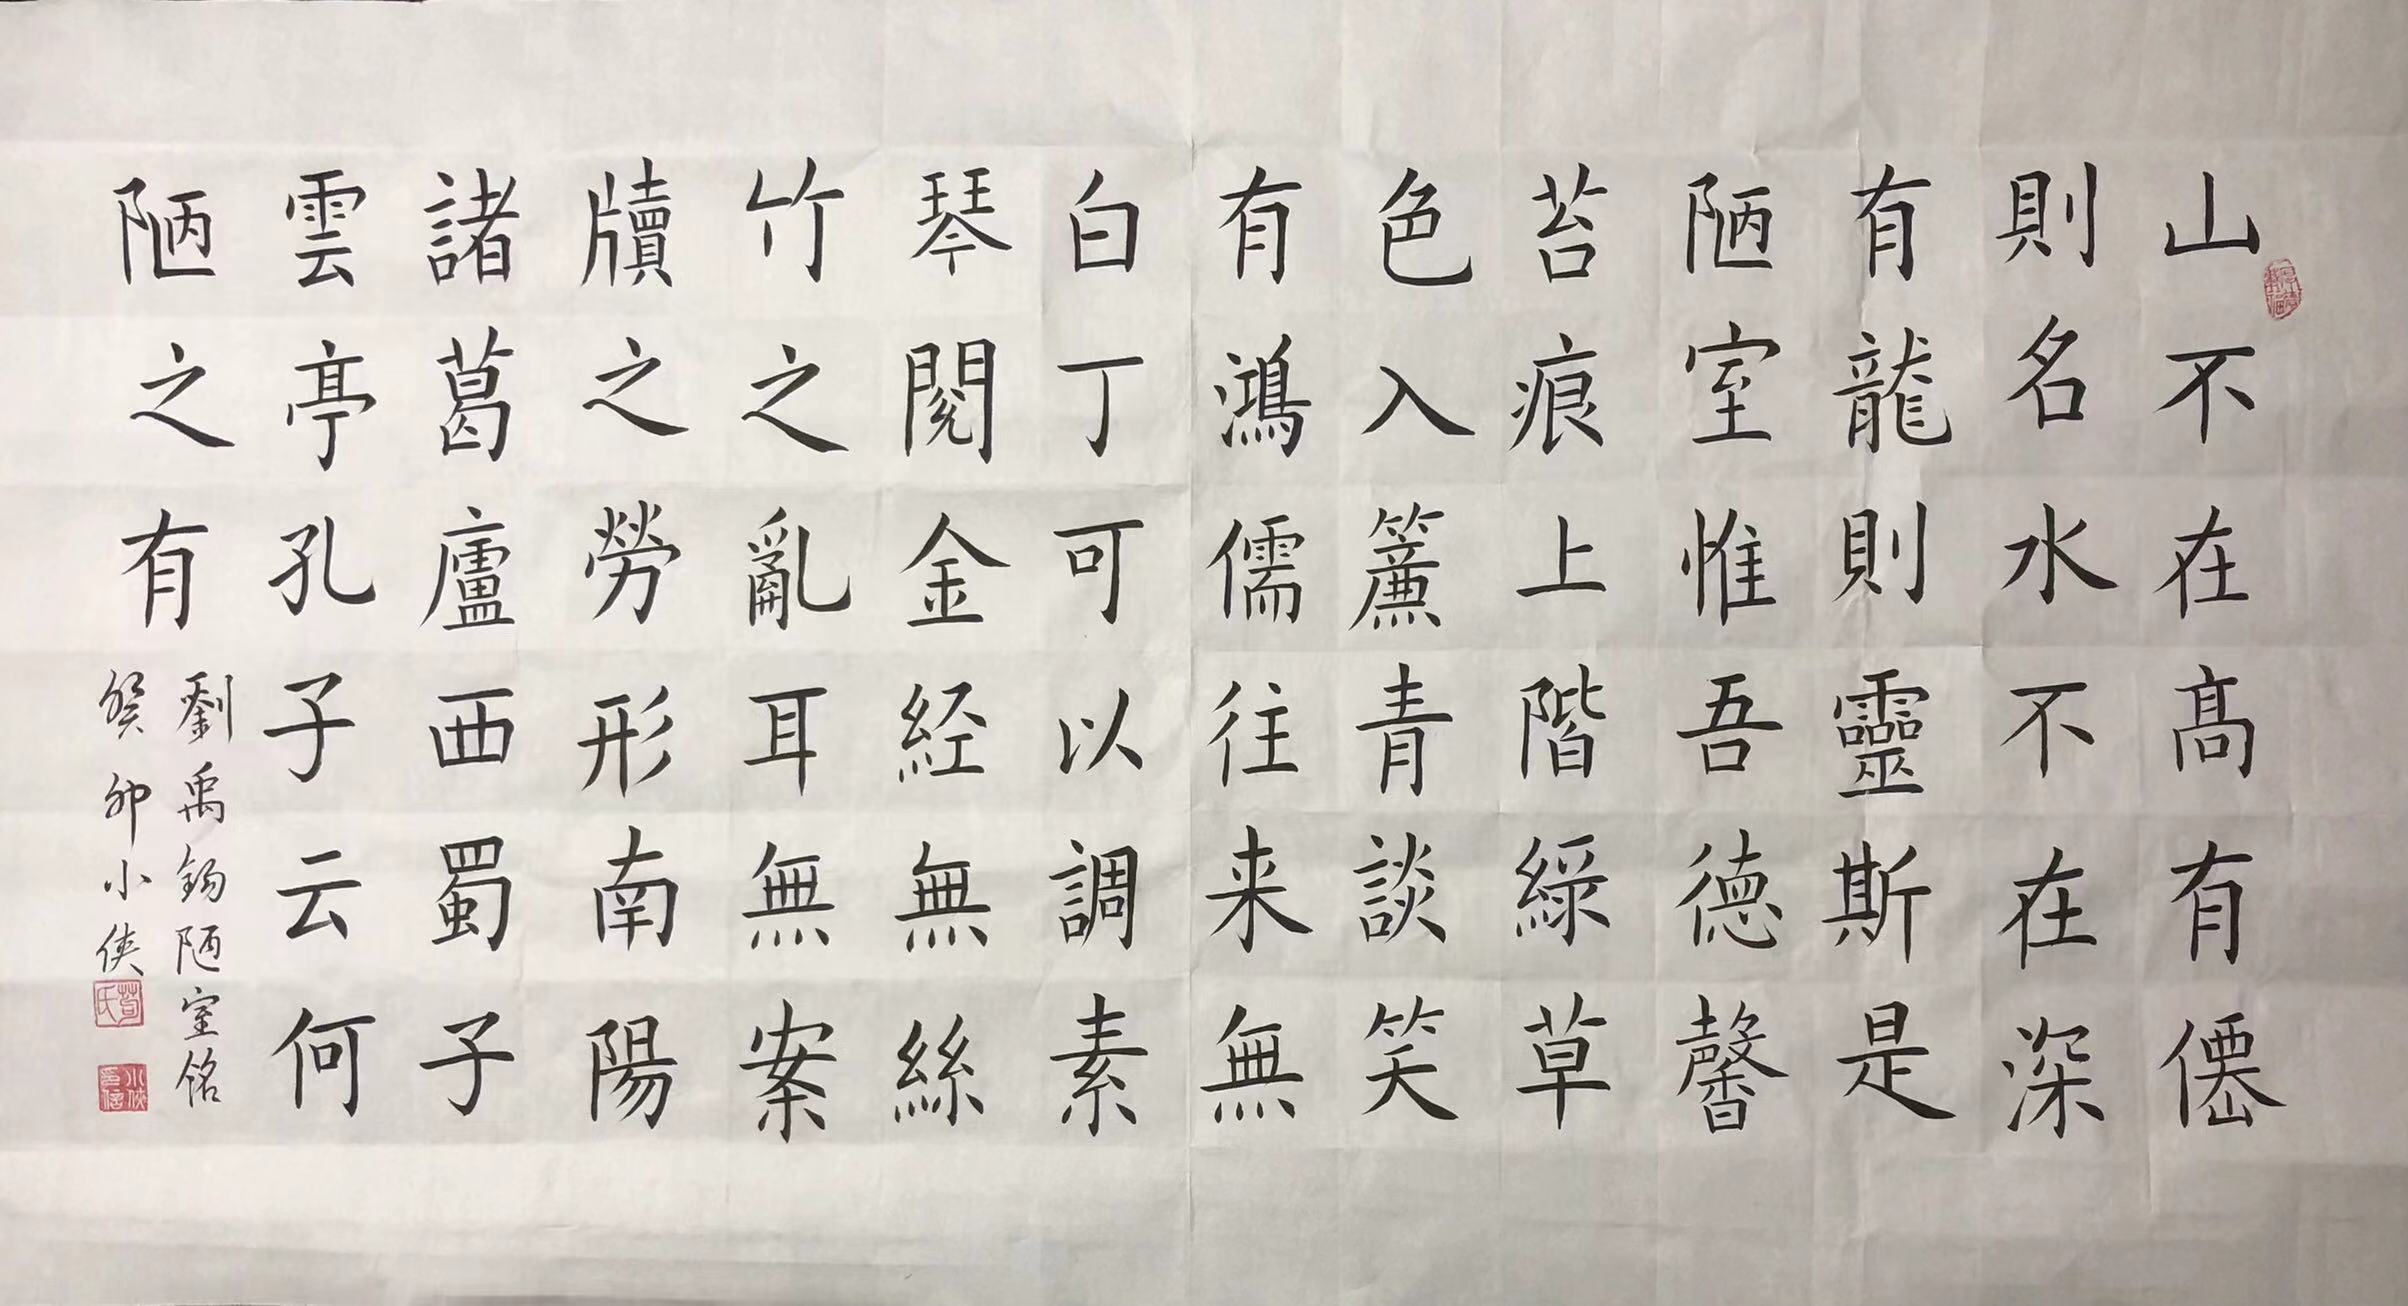 山不在高有僊
則名水不在深
有龍則靈斯是
陋室惟吾德馨
苔痕上階綠草
色入簾青談笑
有鴻儒往来無
白丁可以調素
琴閱金経無絲
竹之亂耳無案
牘之勞形南陽
諸葛廬西蜀子
雲亭孔子云何
陋之有
劉禹錫陋室銘
癸卯小俠